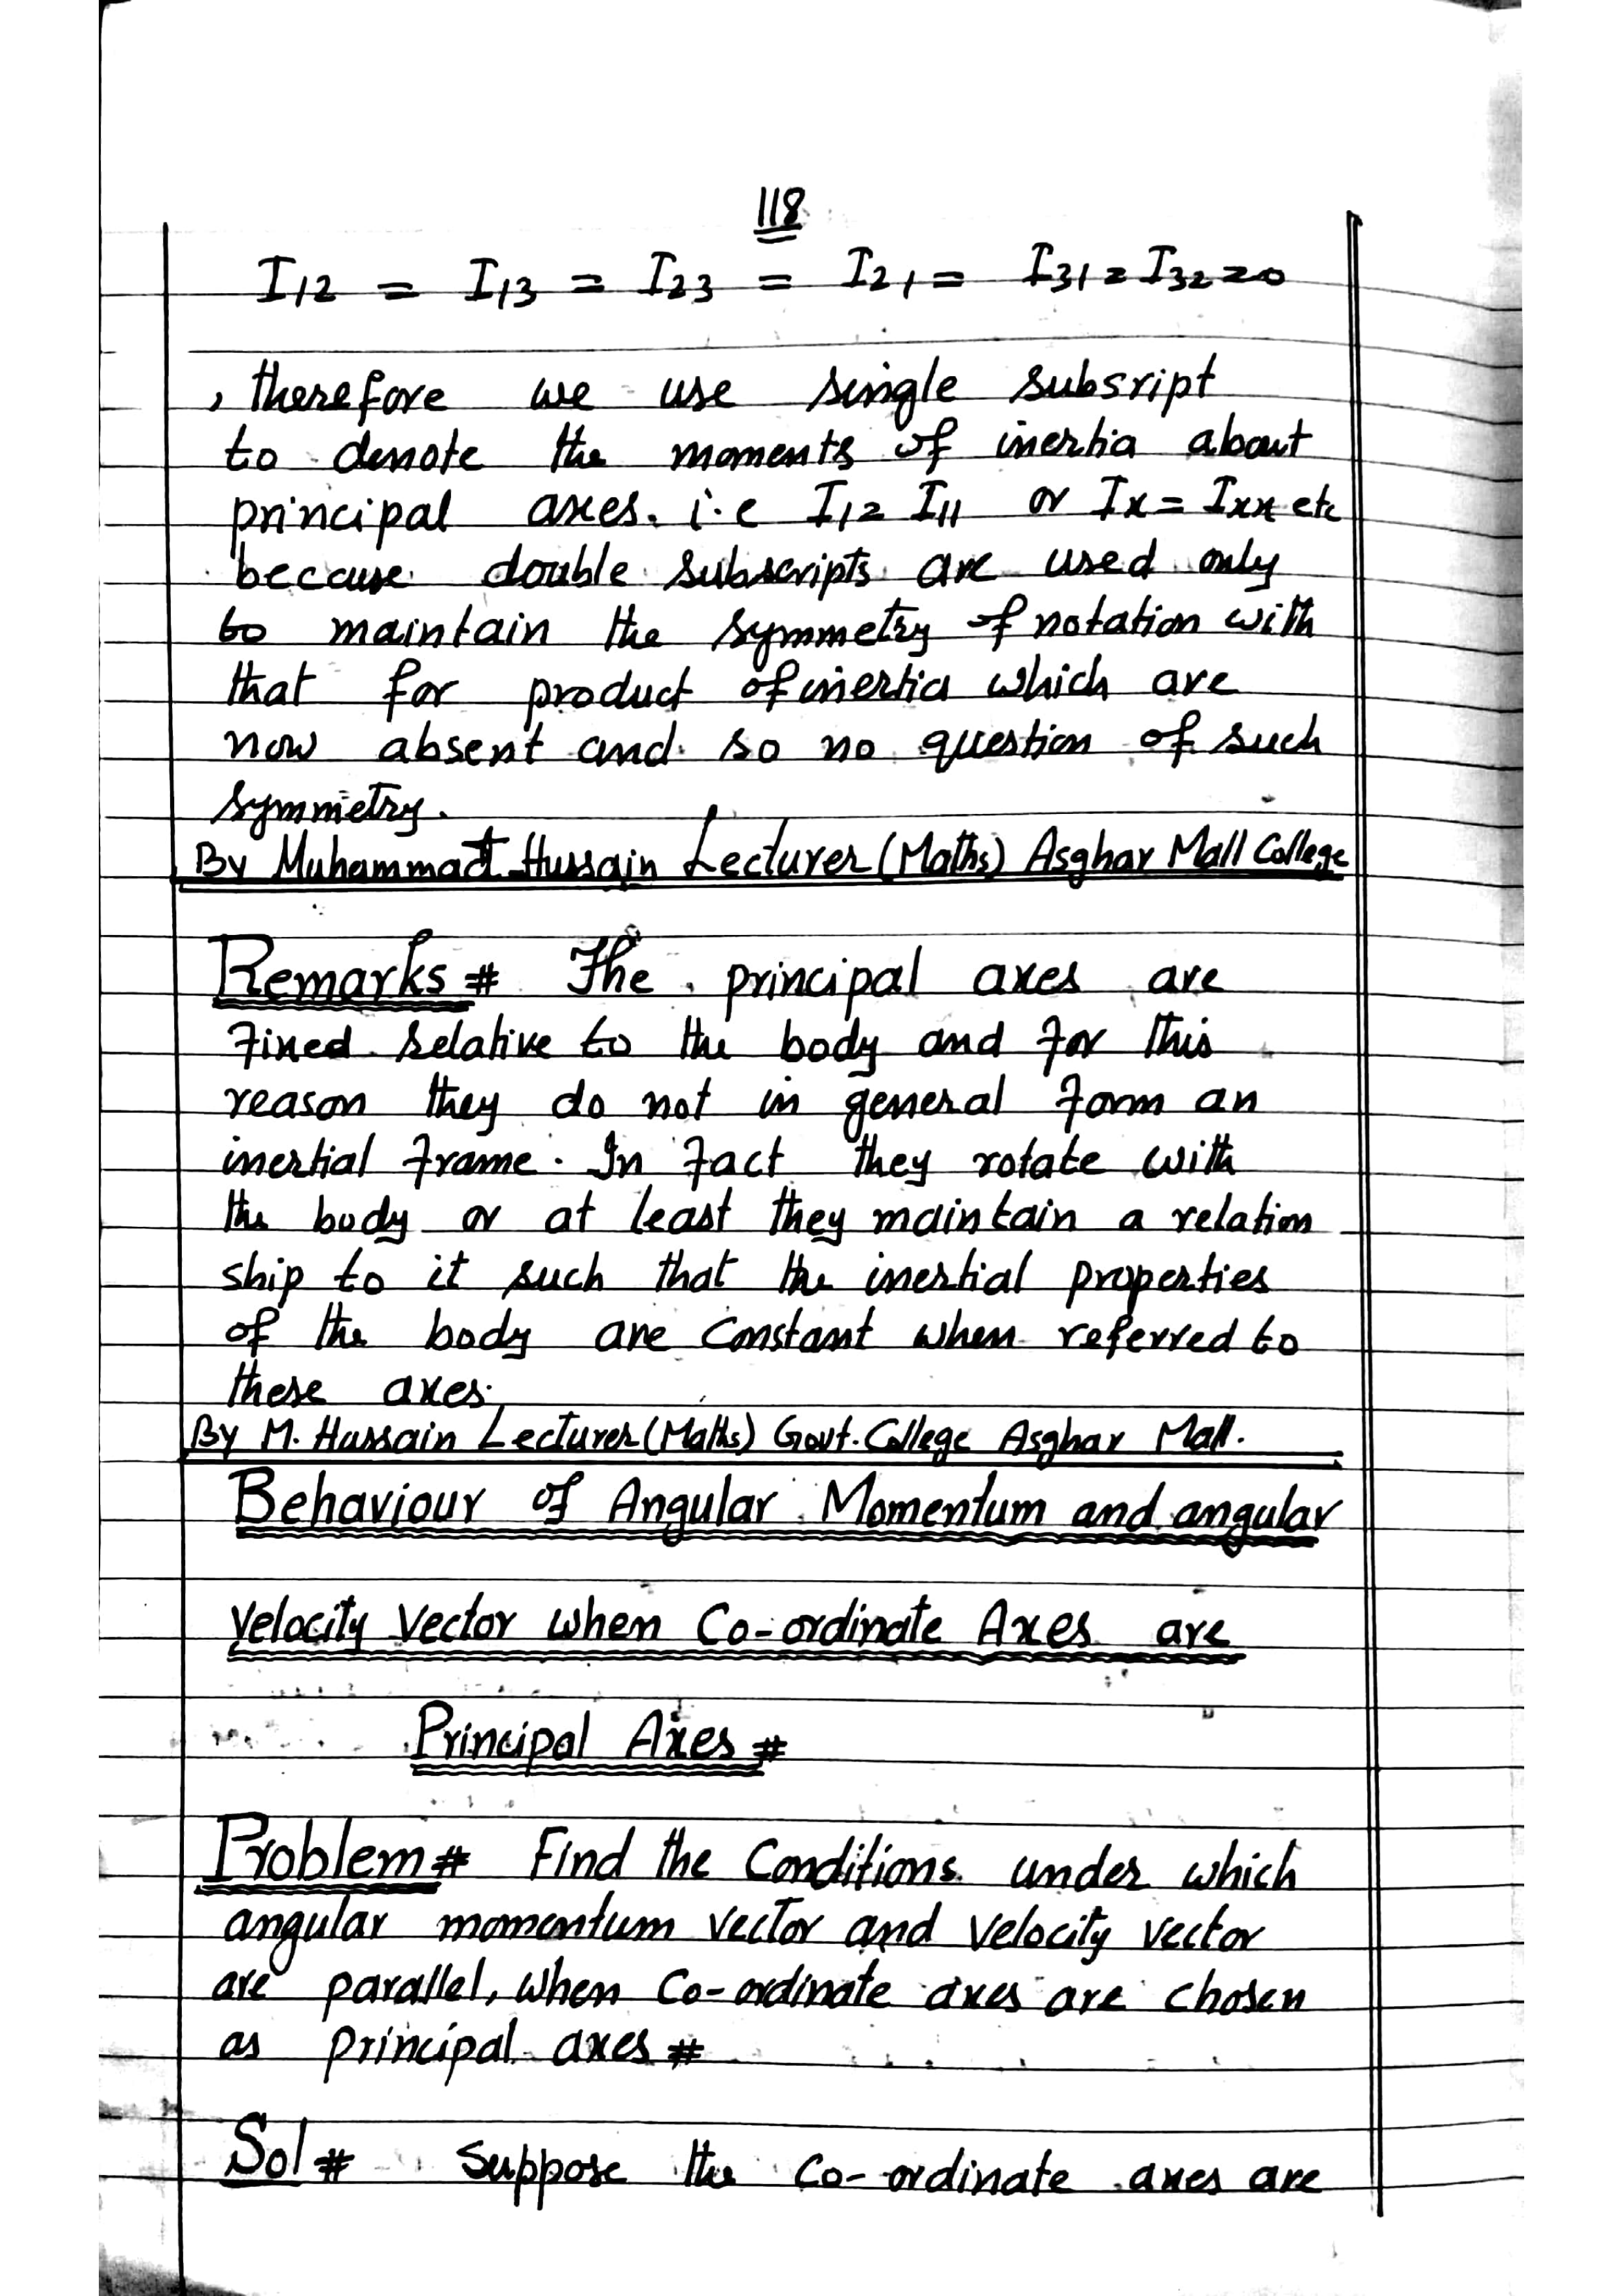 118
I12 = I13 = I23 = I21 = I31 = I32 = 0
, therefore we use single subsript
to denote the moments of inertia about
principal axes. i.e I1 = I11 or Ix = Ixx etc
because double subscripts are used only
to maintain the symmetry of notation with
that for product of inertia which are
now absent and so no question of such
symmetry.
By Muhammad Hussain Lecturer (Maths) Asghar Mall College
Remarks # The principal axes are
fixed relative to the body and for this
reason they do not in general form an
inertial frame. In fact they rotate with
the body or at least they maintain a relation
ship to it such that the inertial properties
of the body are constant when referred to
these axes.
By M. Hussain Lecturer (Maths) Govt. College Asghar Mall.
Behaviour of Angular Momentum and angular
Velocity Vector when Co-ordinate Axes are
Principal Axes #
Problem # Find the Conditions under which
angular momentum vector and velocity vector
are parallel, when Co-ordinate axes are chosen
as principal axes #
Sol # Suppose the co-ordinate axes are